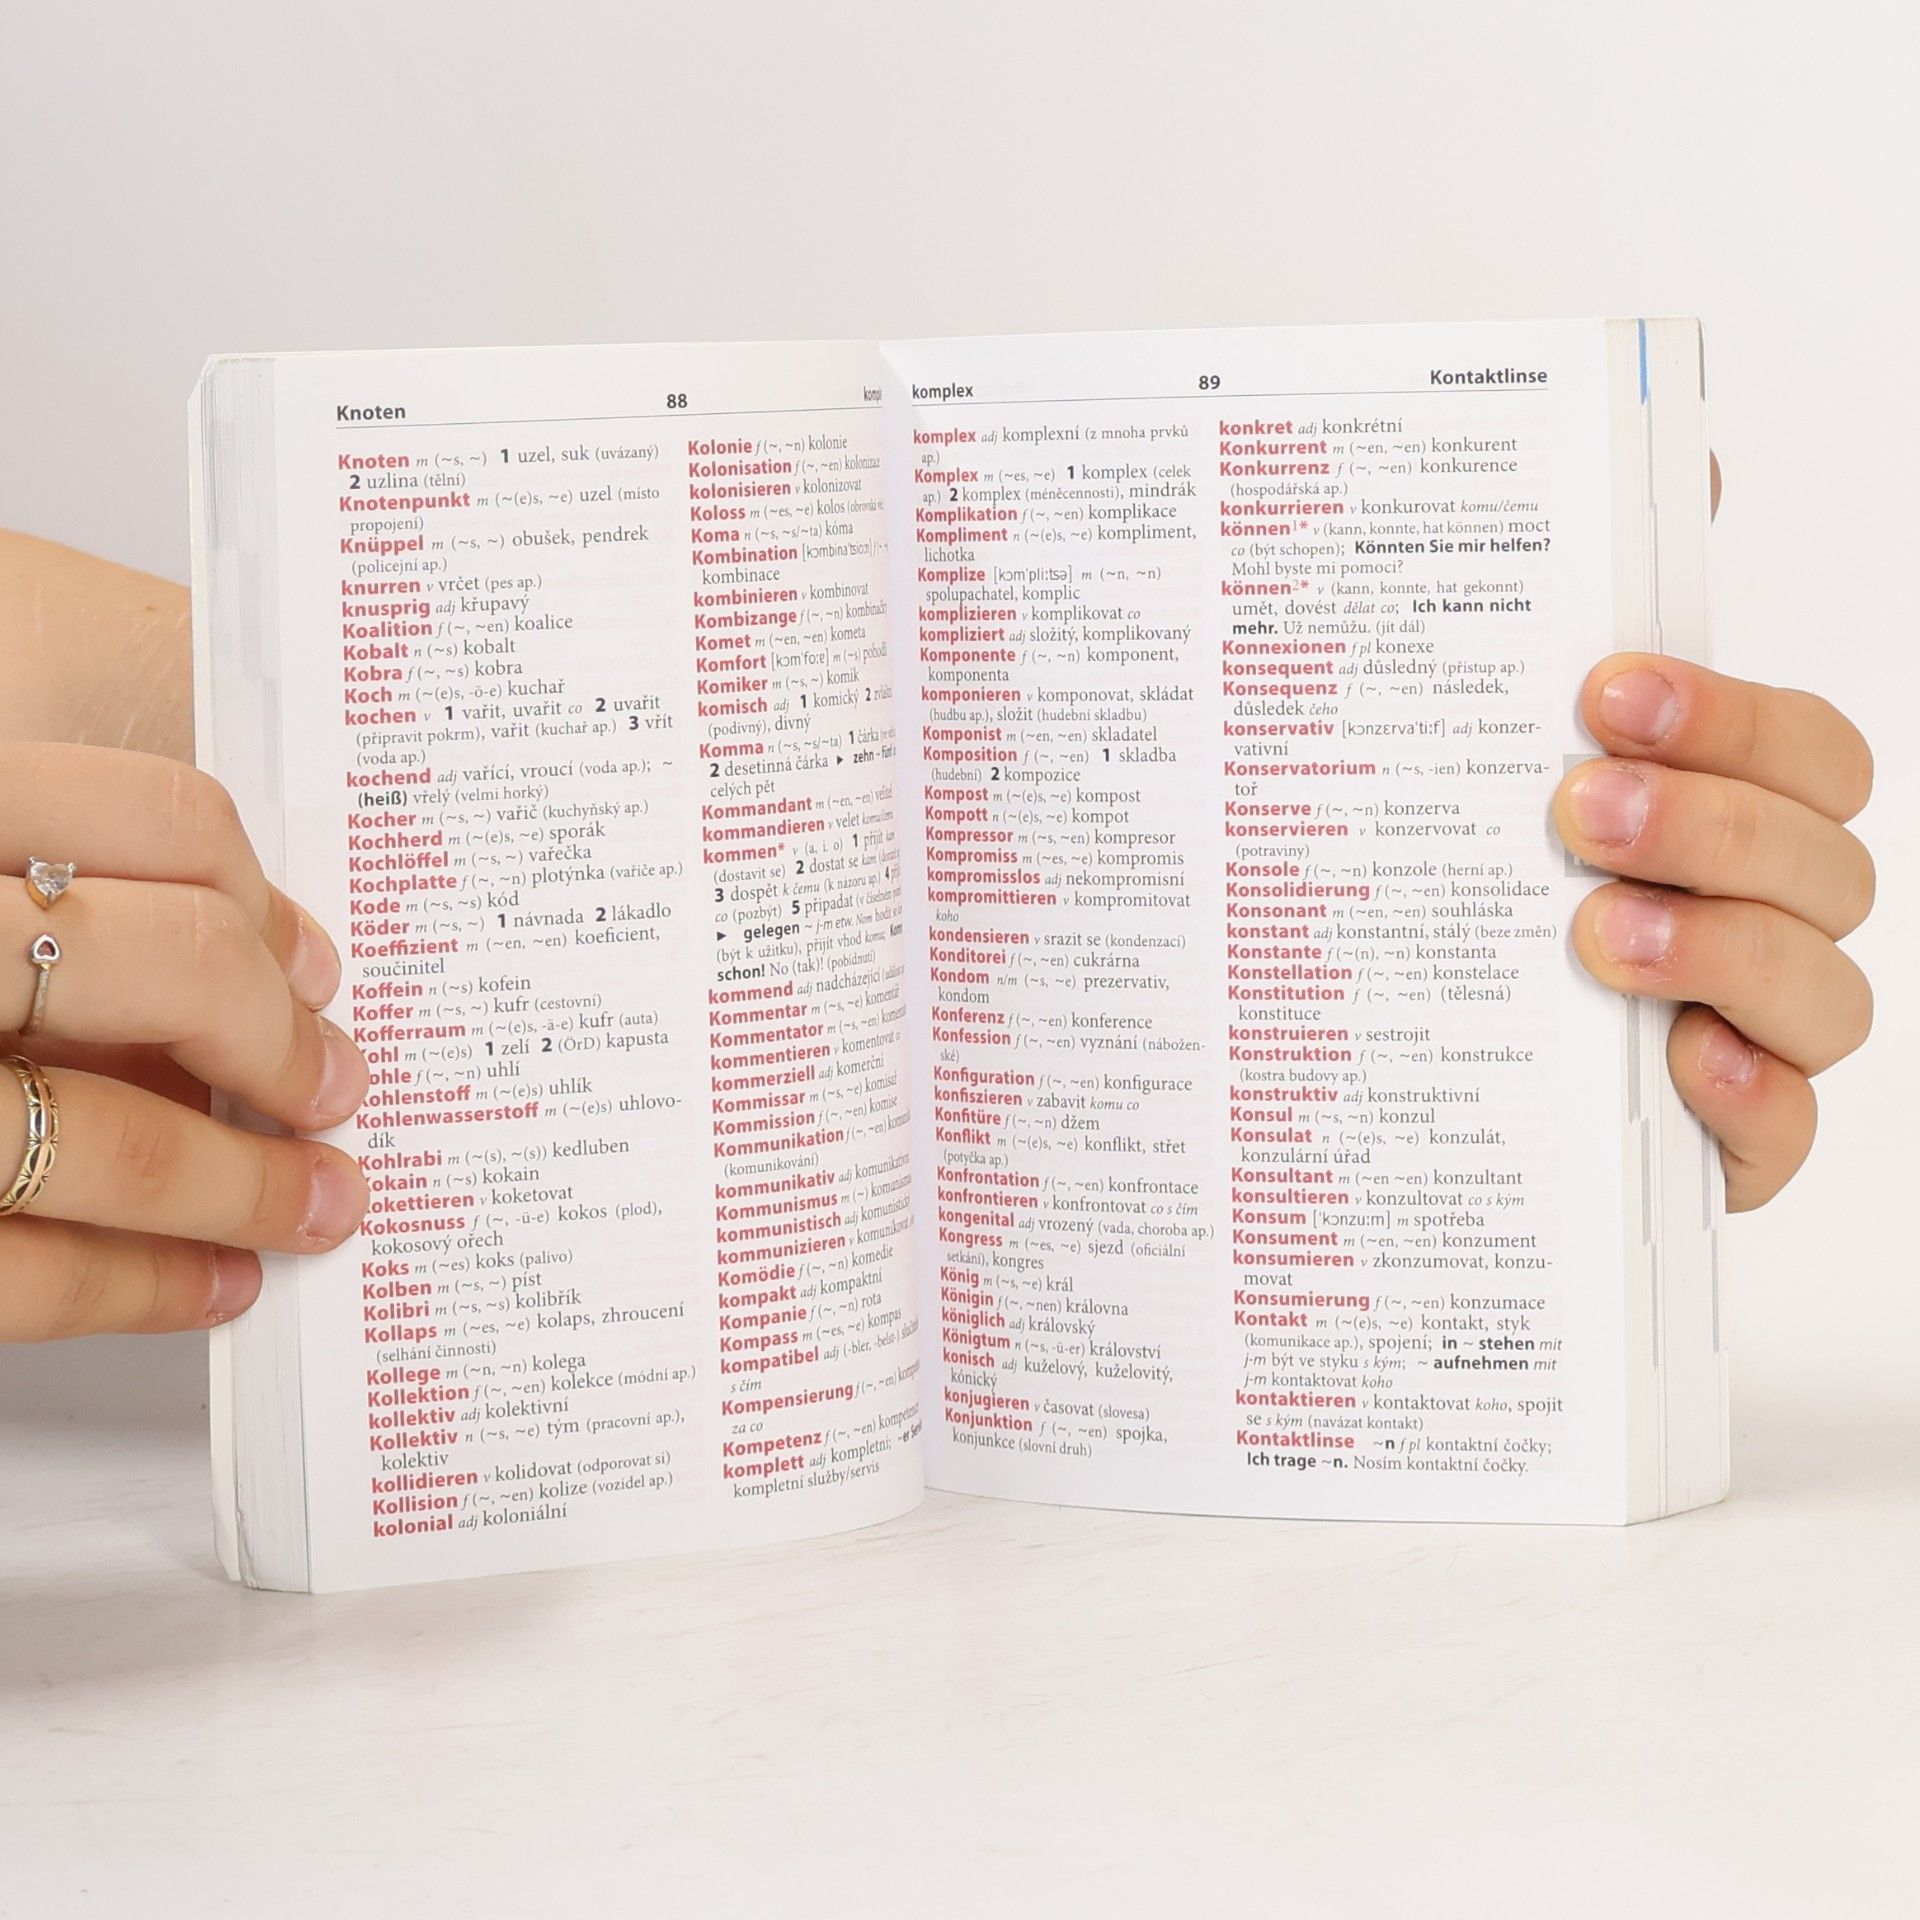 Knoten 88
Knoten m (~s, ~) 1 uzel, suk (uvázaný)
2 uzlina (tělní)
Knotenpunkt m (~(e)s, ~e) uzel (místo
propojení)
Knüppel m (~s, ~) obušek, pendrek
(policejní ap.)
knurren v vrčet (pes ap.)
knusprig adj křupavý
Koalition f (~, ~en) koalice
Kobalt n (~s) kobalt
Kobra f (~, ~s) kobra
Koch m (~(e)s, -ö-e) kuchař
kochen v 1 vařit, uvařit co 2 uvařit
(připravit pokrm), vařit (kuchař ap.) 3 vřít
(voda ap.)
kochend adj vařící, vroucí (voda ap.); ~
(heiß) vřelý (velmi horký)
Kocher m (~s, ~) vařič (kuchyňský ap.)
Kochherd m (~(e)s, ~e) sporák
Kochlöffel m (~s, ~) vařečka
Kochplatte f (~, ~n) plotýnka (vařiče ap.)
Kode m (~s, ~s) kód
Köder m (~s, ~) 1 návnada 2 lákadlo
Koeffizient m (~en, ~en) koeficient,
součinitel
Koffein n (~s) kofein
Koffer m (~s, ~) kufr (cestovní)
Kofferraum m (~(e)s, -ä-e) kufr (auta)
ohl m (~(e)s) 1 zelí 2 (ÖrD) kapusta
ohle f (~, ~n) uhlí
ohlenstoff m (~(e)s) uhlík
Kohlenwasserstoff m (~(e)s) uhlovo-
dík
Kohlrabi m (~(s), ~(s)) kedluben
okain n (~s) kokain
okettieren v koketovat
Kokosnuss f (~, -ü-e) kokos (plod),
kokosový ořech
Koks m (~es) koks (palivo)
Kolben m (~s, ~) píst
Kolibri m (~s, ~s) kolibřík
Kollaps m (~es, ~e) kolaps, zhroucení
(selhání činnosti)
Kollege m (~n, ~n) kolega
Kollektion f (~, ~en) kolekce (módní ap.)
kollektiv adj kolektivní
Kollektiv n (~s, ~e) tým (pracovní ap.),
kolektiv
kollidieren v kolidovat (odporovat si)
Kollision f (~, ~en) kolize (vozidel ap.)
kolonial adj koloniální
Kolonie f (~, ~n) kolonie
Kolonisation f (~, ~en) kolonizace
kolonisieren v kolonizovat
Koloss m (~es, ~e) kolos
Koma n (~s, ~s/~ta) kóma
Kombination [kɔmbinaˈtsi̯oːn]
kombinace
kombinieren v kombinovat
Kombizange f (~, ~n) kombinačky
Komet m (~en, ~en) kometa
Komfort [kɔmˈfoːɐ] m (~s) pohodlí
Komiker m (~s, ~) komik
komisch adj 1 komický 2
(podivný), divný
Komma n (~s, ~s/~ta) 1 čárka
2 desetinná čárka ▶ zehn ~ fünf
celých pět
Kommandant m (~en, ~en) velitel
kommandieren v velet
kommen* v (a, i. o) 1 přijít kam
(dostavit se) 2 dostat se kam
3 dospět k čemu (k názoru ap.) 4
co (pozbýt) 5 připadat
▶ gelegen ~ j-m etw. Nom hodit se
(být k užitku), přijít vhod komu;
schon! No (tak)! (pobídnutí)
kommend adj nadcházející
Kommentar m (~s, ~e) komentář
Kommentator m (~s, ~en)
kommentieren v komentovat co
kommerziell adj komerční
Kommissar m (~s, ~e) komisař
Kommission f (~, ~en) komise
Kommunikation f (~, ~en)
(komunikování)
kommunikativ adj komunikativní
Kommunismus m (~) komunismus
kommunistisch adj komunistický
kommunizieren v komunikovat
Komödie f (~, ~n) komedie
kompakt adj kompaktní
Kompanie f (~, ~n) rota
Kompass m (~es, ~e) kompas
kompatibel adj (-bler, -belst-)
s čím
Kompensierung f (~, ~en)
za co
Kompetenz f (~, ~en) kompetence
komplett adj kompletní; ~er
kompletní služby/servis
komplex 89 Kontaktlinse
komplex adj komplexní (z mnoha prvků
ap.)
Komplex m (~es, ~e) 1 komplex (celek
ap.) 2 komplex (méněcennosti), mindrák
Komplikation f (~, ~en) komplikace
Kompliment n (~(e)s, ~e) kompliment,
lichotka
Komplize [kɔmˈpliːtsə] m (~n, ~n)
spolupachatel, komplic
komplizieren v komplikovat co
kompliziert adj složitý, komplikovaný
Komponente f (~, ~n) komponent,
komponenta
komponieren v komponovat, skládat
(hudbu ap.), složit (hudební skladbu)
Komponist m (~en, ~en) skladatel
Komposition f (~, ~en) 1 skladba
(hudební) 2 kompozice
Kompost m (~(e)s, ~e) kompost
Kompott n (~(e)s, ~e) kompot
Kompressor m (~s, ~en) kompresor
Kompromiss m (~es, ~e) kompromis
kompromisslos adj nekompromisní
kompromittieren v kompromitovat
koho
kondensieren v srazit se (kondenzací)
Konditorei f (~, ~en) cukrárna
Kondom n/m (~s, ~e) prezervativ,
kondom
Konferenz f (~, ~en) konference
Konfession f (~, ~en) vyznání (nábožen-
ské)
Konfiguration f (~, ~en) konfigurace
konfiszieren v zabavit komu co
Konfitüre f (~, ~n) džem
Konflikt m (~(e)s, ~e) konflikt, střet
(potyčka ap.)
Konfrontation f (~, ~en) konfrontace
konfrontieren v konfrontovat co s čím
kongenital adj vrozený (vada, choroba ap.)
Kongress m (~es, ~e) sjezd (oficiální
setkání), kongres
König m (~s, ~e) král
Königin f (~, ~nen) královna
königlich adj královský
Königtum n (~s, -ü-er) království
konisch adj kuželový, kuželovitý,
kónický
konjugieren v časovat (slovesa)
Konjunktion f (~, ~en) spojka,
konjunkce (slovní druh)
konkret adj konkrétní
Konkurrent m (~en, ~en) konkurent
Konkurrenz f (~, ~en) konkurence
(hospodářská ap.)
konkurrieren v konkurovat komu/čemu
können¹* v (kann, konnte, hat können) moct
co (být schopen); Könnten Sie mir helfen?
Mohl byste mi pomoci?
können²* v (kann, konnte, hat gekonnt)
umět, dovést dělat co; Ich kann nicht
mehr. Už nemůžu. (jít dál)
Konnexionen f pl konexe
konsequent adj důsledný (přístup ap.)
Konsequenz f (~, ~en) následek,
důsledek čeho
konservativ [kɔnzɛrvaˈtiːf] adj konzer-
vativní
Konservatorium n (~s, -ien) konzerva-
toř
Konserve f (~, ~n) konzerva
konservieren v konzervovat co
(potraviny)
Konsole f (~, ~n) konzole (herní ap.)
Konsolidierung f (~, ~en) konsolidace
Konsonant m (~en, ~en) souhláska
konstant adj konstantní, stálý (beze změn)
Konstante f (~(n), ~n) konstanta
Konstellation f (~, ~en) konstelace
Konstitution f (~, ~en) (tělesná)
konstituce
konstruieren v sestrojit
Konstruktion f (~, ~en) konstrukce
(kostra budovy ap.)
konstruktiv adj konstruktivní
Konsul m (~s, ~n) konzul
Konsulat n (~(e)s, ~e) konzulát,
konzulární úřad
Konsultant m (~en ~en) konzultant
konsultieren v konzultovat co s kým
Konsum [ˈkɔnzuːm] m spotřeba
Konsument m (~en, ~en) konzument
konsumieren v zkonzumovat, konzu-
movat
Konsumierung f (~, ~en) konzumace
Kontakt m (~(e)s, ~e) kontakt, styk
(komunikace ap.), spojení; in ~ stehen mit
j-m být ve styku s kým; ~ aufnehmen mit
j-m kontaktovat koho
kontaktieren v kontaktovat koho, spojit
se s kým (navázat kontakt)
Kontaktlinse ~n f pl kontaktní čočky;
Ich trage ~n. Nosím kontaktní čočky.